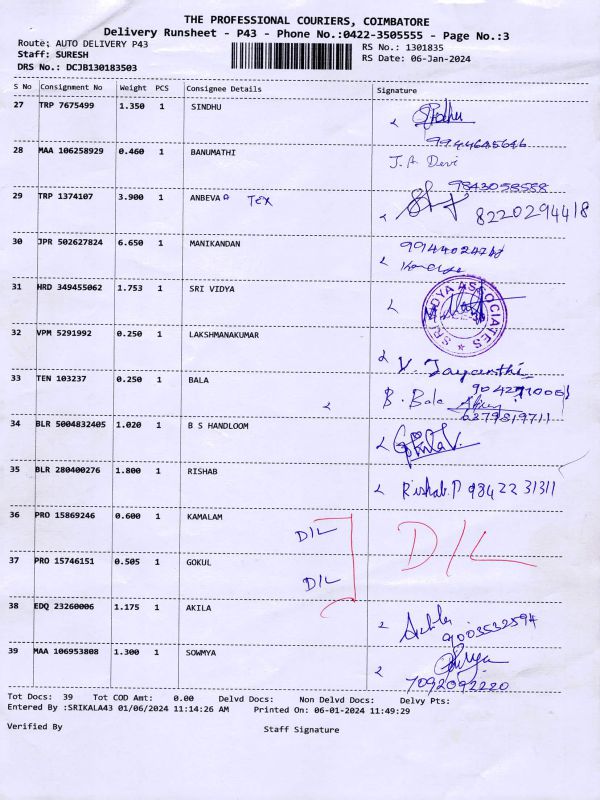 THE PROFESSIONAL COURIERS, COIMBATORE
Delivery Runsheet - P43 - Phone No.:0422-3505555 - Page No.:3
Route: AUTO DELIVERY P43
RS No.: 1301835
Staff: SURESH
RS Date: 06-Jan-2024
DRS No.: DCJB130183503
S No Consignment No Weight PCS Consignee Details Signature
27 TRP 7675499 1.350 1 SINDHU
9944645646
28 MAA 106258929 0.460 1 BANUMATHI J.A Devi
9843058588
29 TRP 1374107 3.900 1 ANBEVA A TEX 8220294418
30 JPR 502627824 6.650 1 MANIKANDAN
31 HRD 349455062 1.753 1 SRI VIDYA
SRI VIDYA ASSOCIATES
32 VPM 5291992 0.250 1 LAKSHMANAKUMAR
V. Jayanthi
33 TEN 103237 0.250 1 BALA B. Bala
6279819711
34 BLR 5004832405 1.020 1 B S HANDLOOM
35 BLR 280400276 1.800 1 RISHAB Rishab.P 98422 31311
36 PRO 15869246 0.600 1 KAMALAM D/L D/L
37 PRO 15746151 0.505 1 GOKUL D/L
38 EDQ 23260006 1.175 1 AKILA
9003532594
39 MAA 106953808 1.300 1 SOWMYA
7092092220
Tot Docs: 39 Tot COD Amt: 0.00 Delvd Docs: Non Delvd Docs: Delvy Pts:
Entered By :SRIKALA43 01/06/2024 11:14:26 AM Printed On: 06-01-2024 11:49:29
Verified By Staff Signature